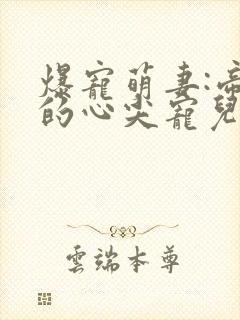 爆寵萌妻:帝
的心尖寵兒
雲端本尊